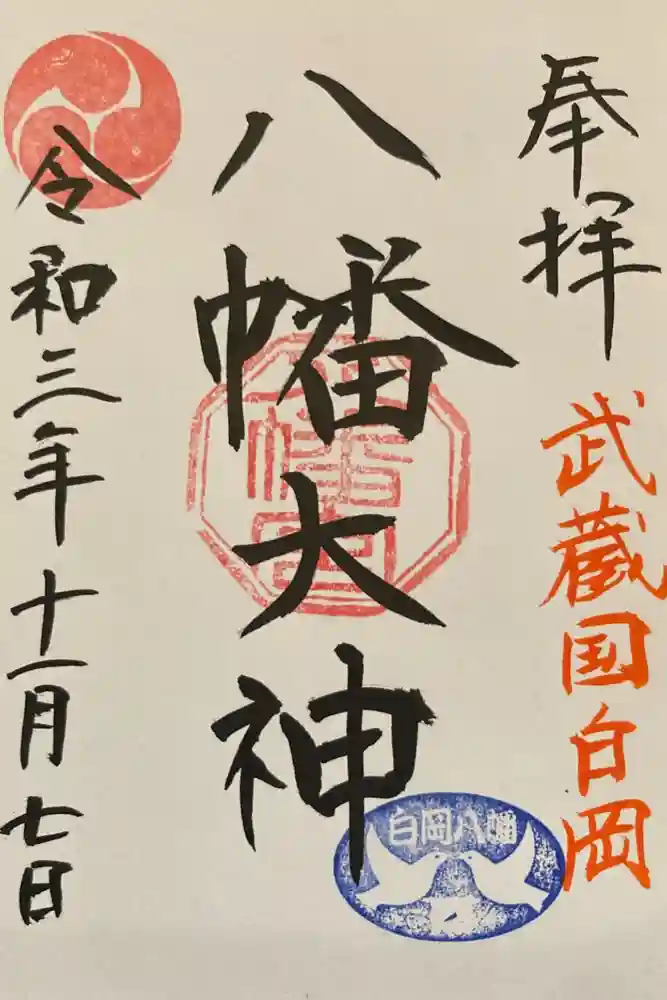 奉拝
武蔵国白岡
八幡大神
令和三年十一月七日
白岡八幡